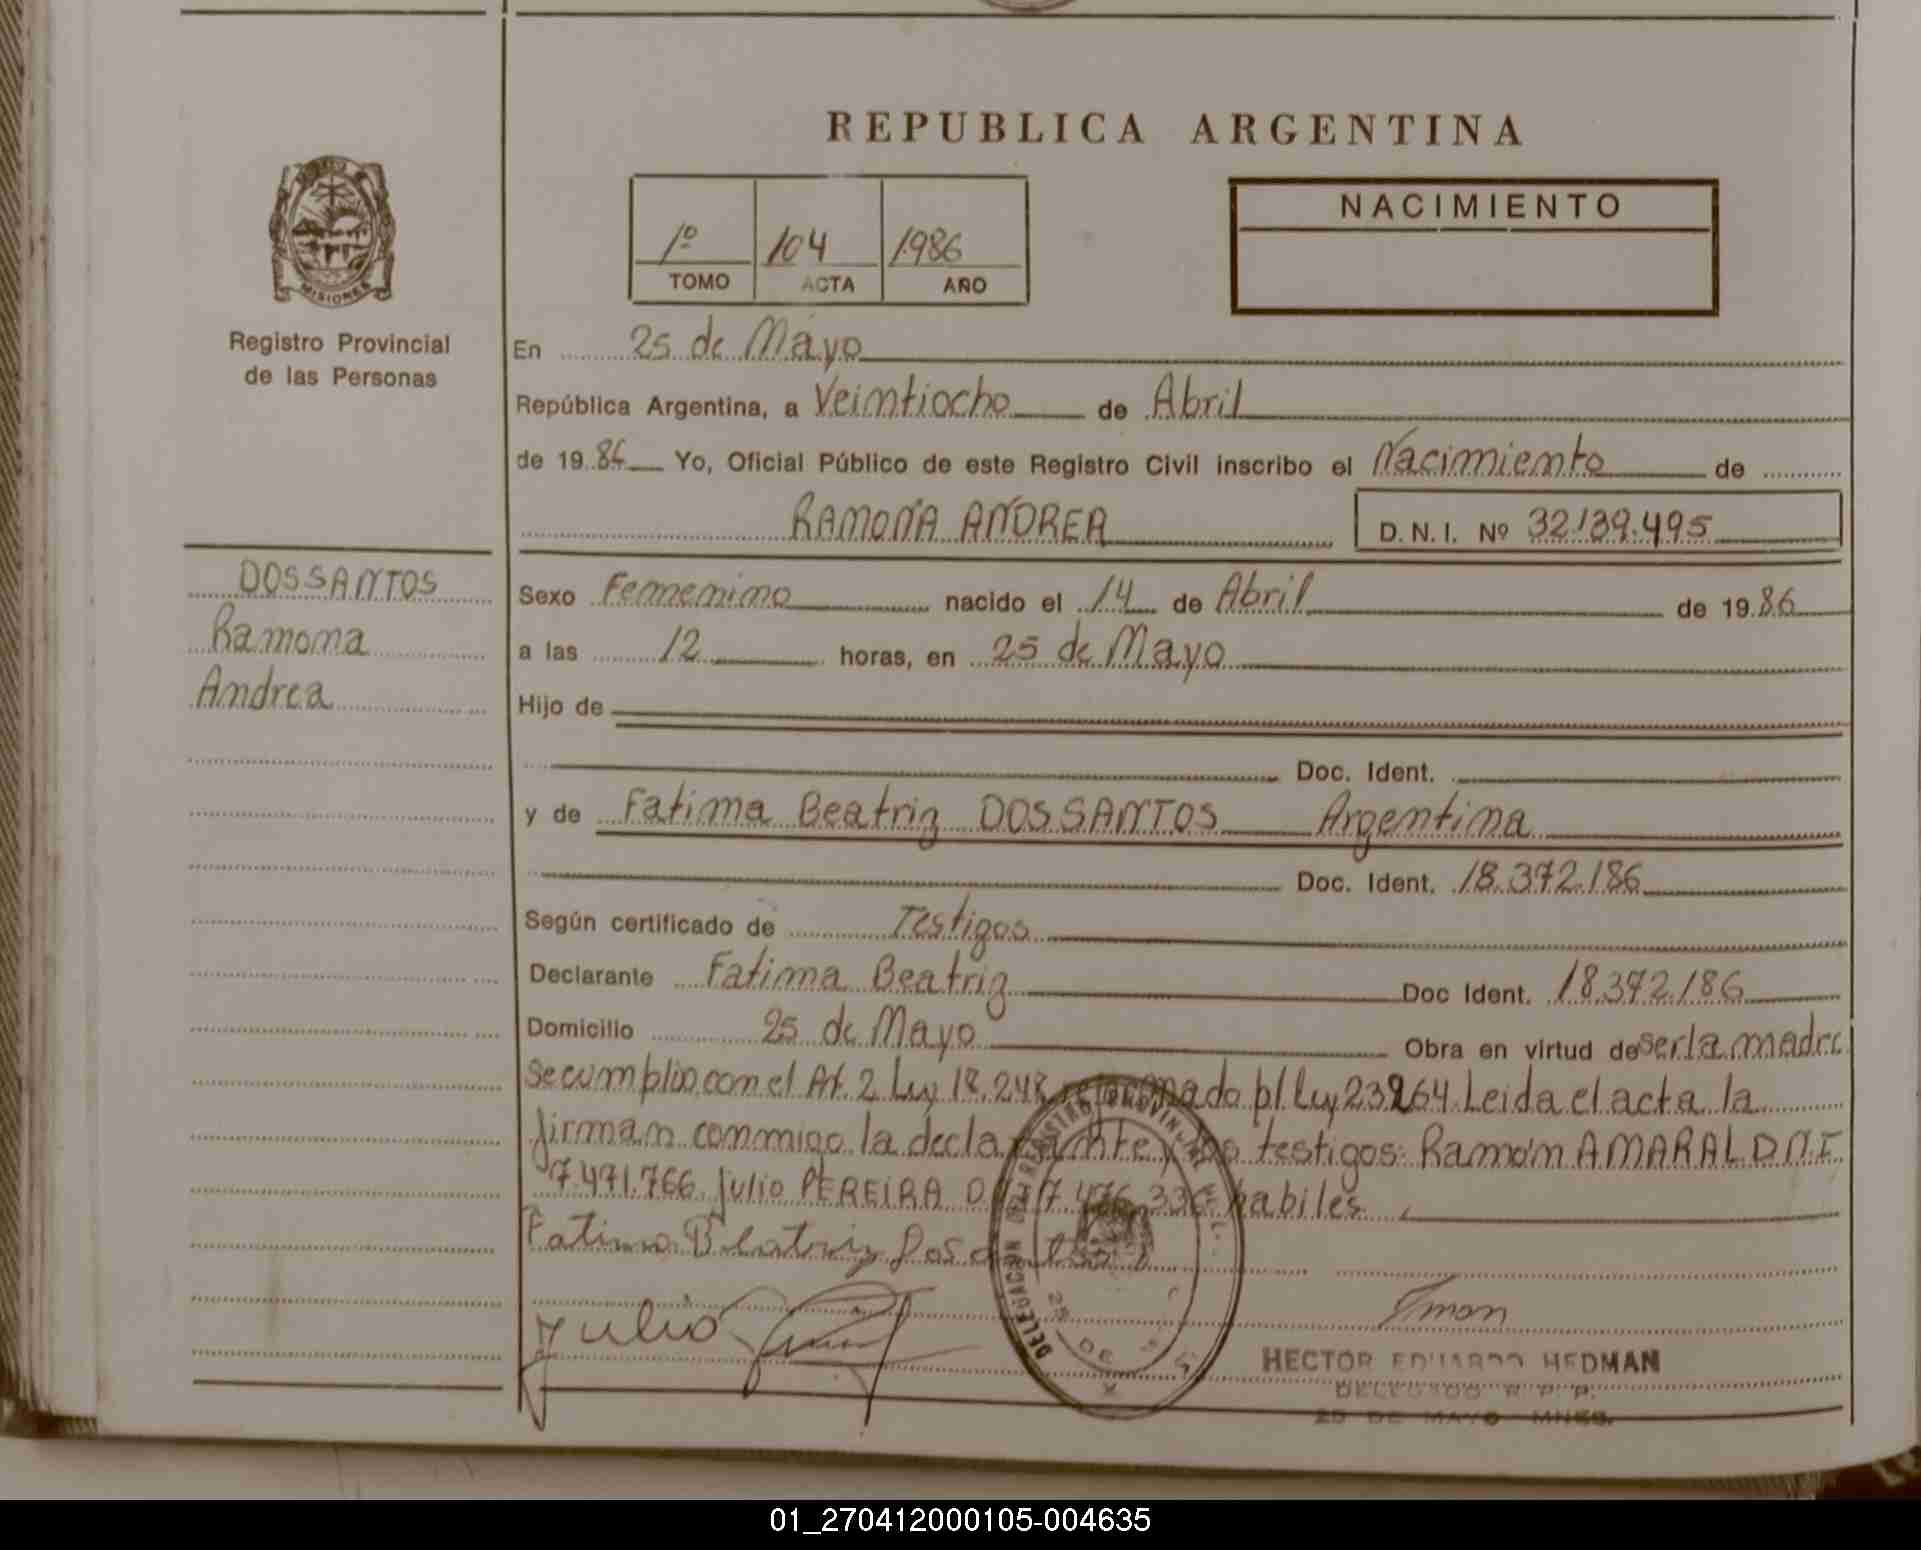 REPUBLICA ARGENTINA
MISIONES
Registro Provincial
de las Personas
1º 104 1986
TOMO ACTA AÑO
NACIMIENTO
En 25 de Mayo
República Argentina, a Veintiocho de Abril
de 1986 Yo, Oficial Público de este Registro Civil inscribo el Nacimiento de
RAMONA ANDREA D.N.I. Nº 32.139.495
DOSSANTOS
Ramona
Andrea
Sexo Femenino nacido el 14 de Abril de 1986
a las 12 horas, en 25 de Mayo
Hijo de
Doc. Ident.
y de Fatima Beatriz DOSSANTOS Argentina
Doc. Ident. 18.372.186
Según certificado de Testigos
Declarante Fatima Beatriz Doc Ident. 18.372.186
Domicilio 25 de Mayo Obra en virtud de ser la madre
Se cumplio con el At. 2 Ley 18.248 p/ Ley 23264 Leida el acta la
firman conmigo la declarante y los testigos: Ramón AMARAL D.N.I
7.471.766 Julio PEREIRA 7.476.330 habiles
Fatima Beatriz
Julio
DELEGACION DEL REGISTRO PROVINCIAL
25 DE
HECTOR EDUARDO HEDMAN
DELEGADO R. P. P.
25 DE MAYO MNES.
01_270412000105-004635